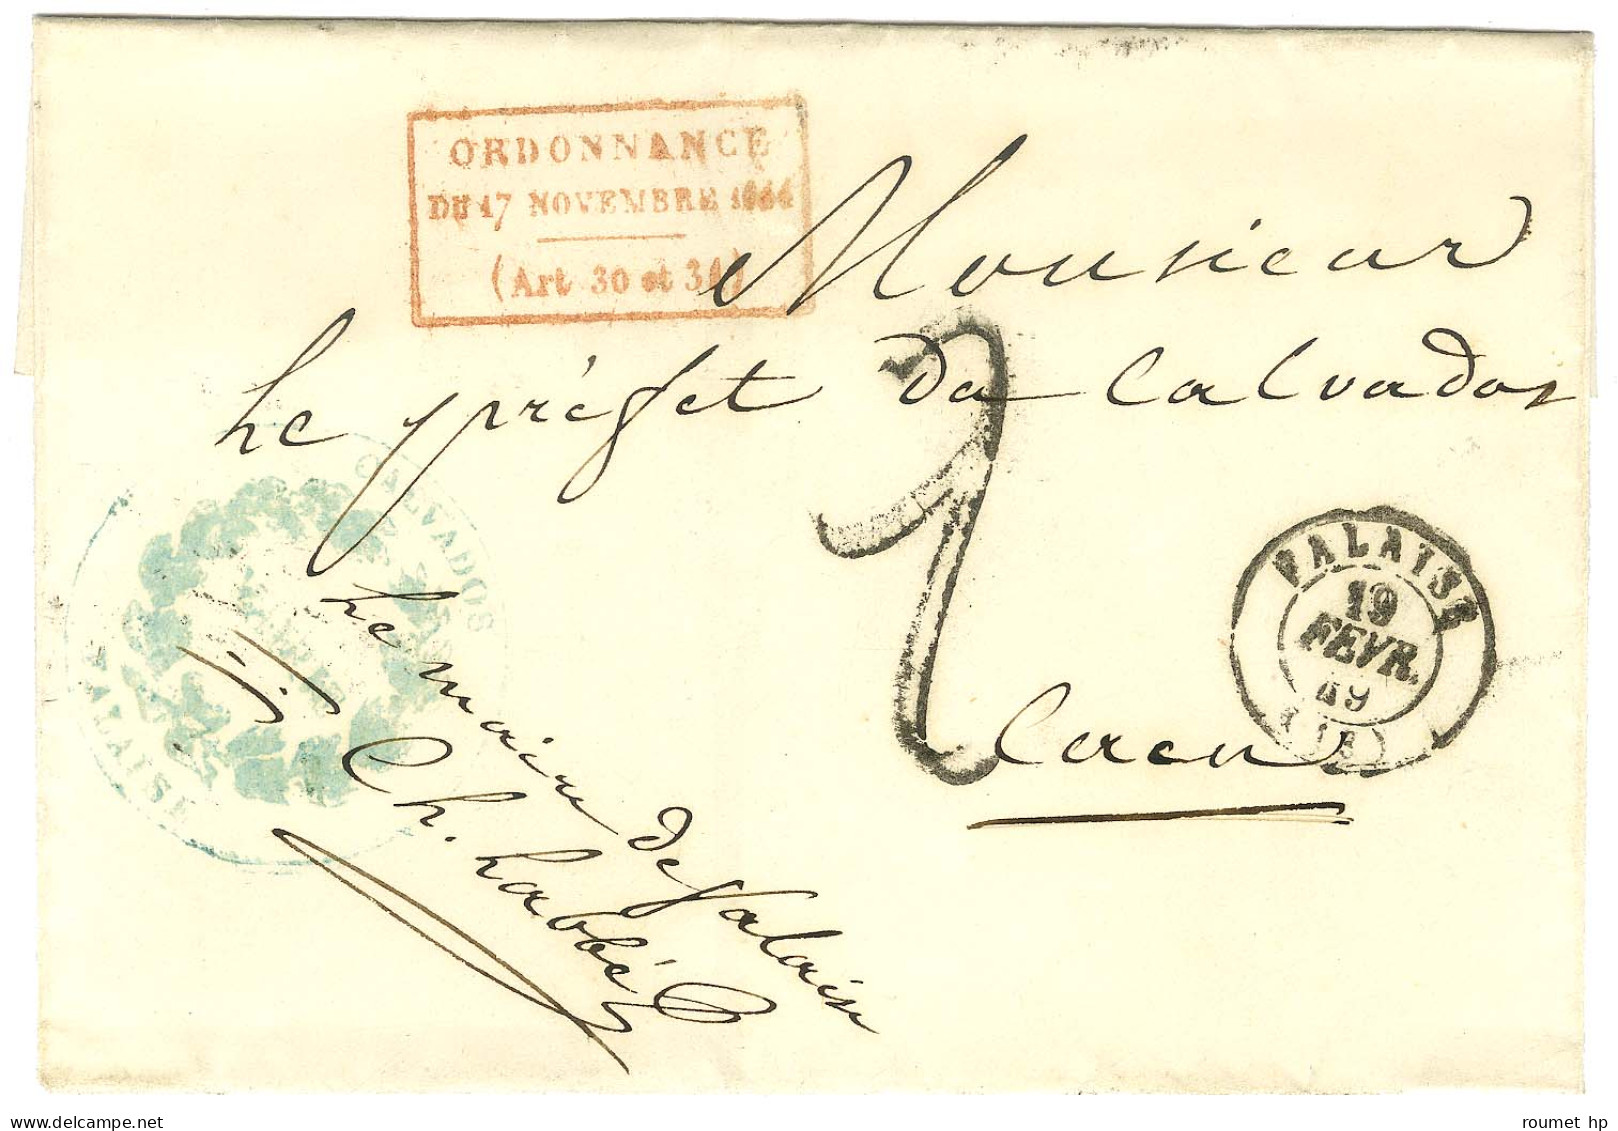 ORDONNANCE
DU 17 NOVEMBRE 1844
(Art 30 et 31)
Monsieur
Le préfet du Calvados
Caen
2
FALAISE
19
FEVR.
49
(13)
CALVADOS
FALAISE
Le maire de falaise
Ch. Labbé
roumet hp